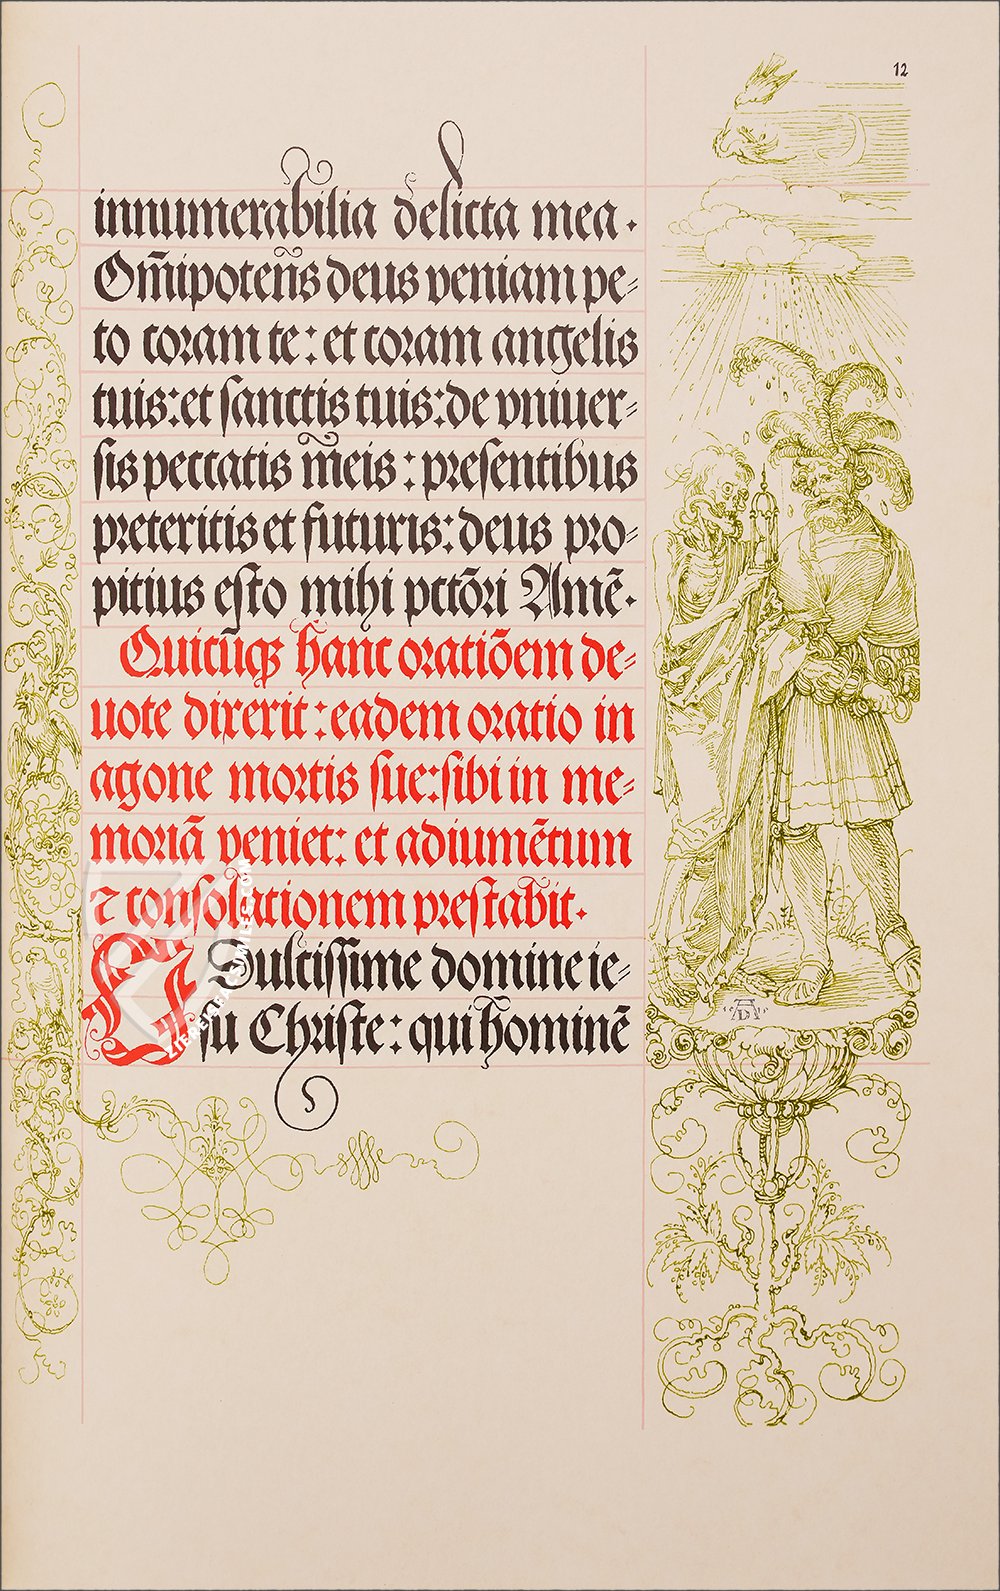 12
innumerabilia delicta mea.
Om̄ipotens̄ deus veniam pe-
to coram te: et coram angelis
tuis: et sanctis tuis: de vniuer-
sis peccatis m̄eis: presentibus
preteritis et futuris: deus pro-
pitius esto mihi pctōri Amē.
Quicūqꝫ hanc oratiōem de-
uote dixerit: eadem oratio in
agone mortis sue: sibi in me-
moriā veniet: et adiumētum
⁊ consolationem prestabit.
O Dulcissime domine ie-
su Christe: qui hominē
AD
ZIEREISFACSIMILES.COM